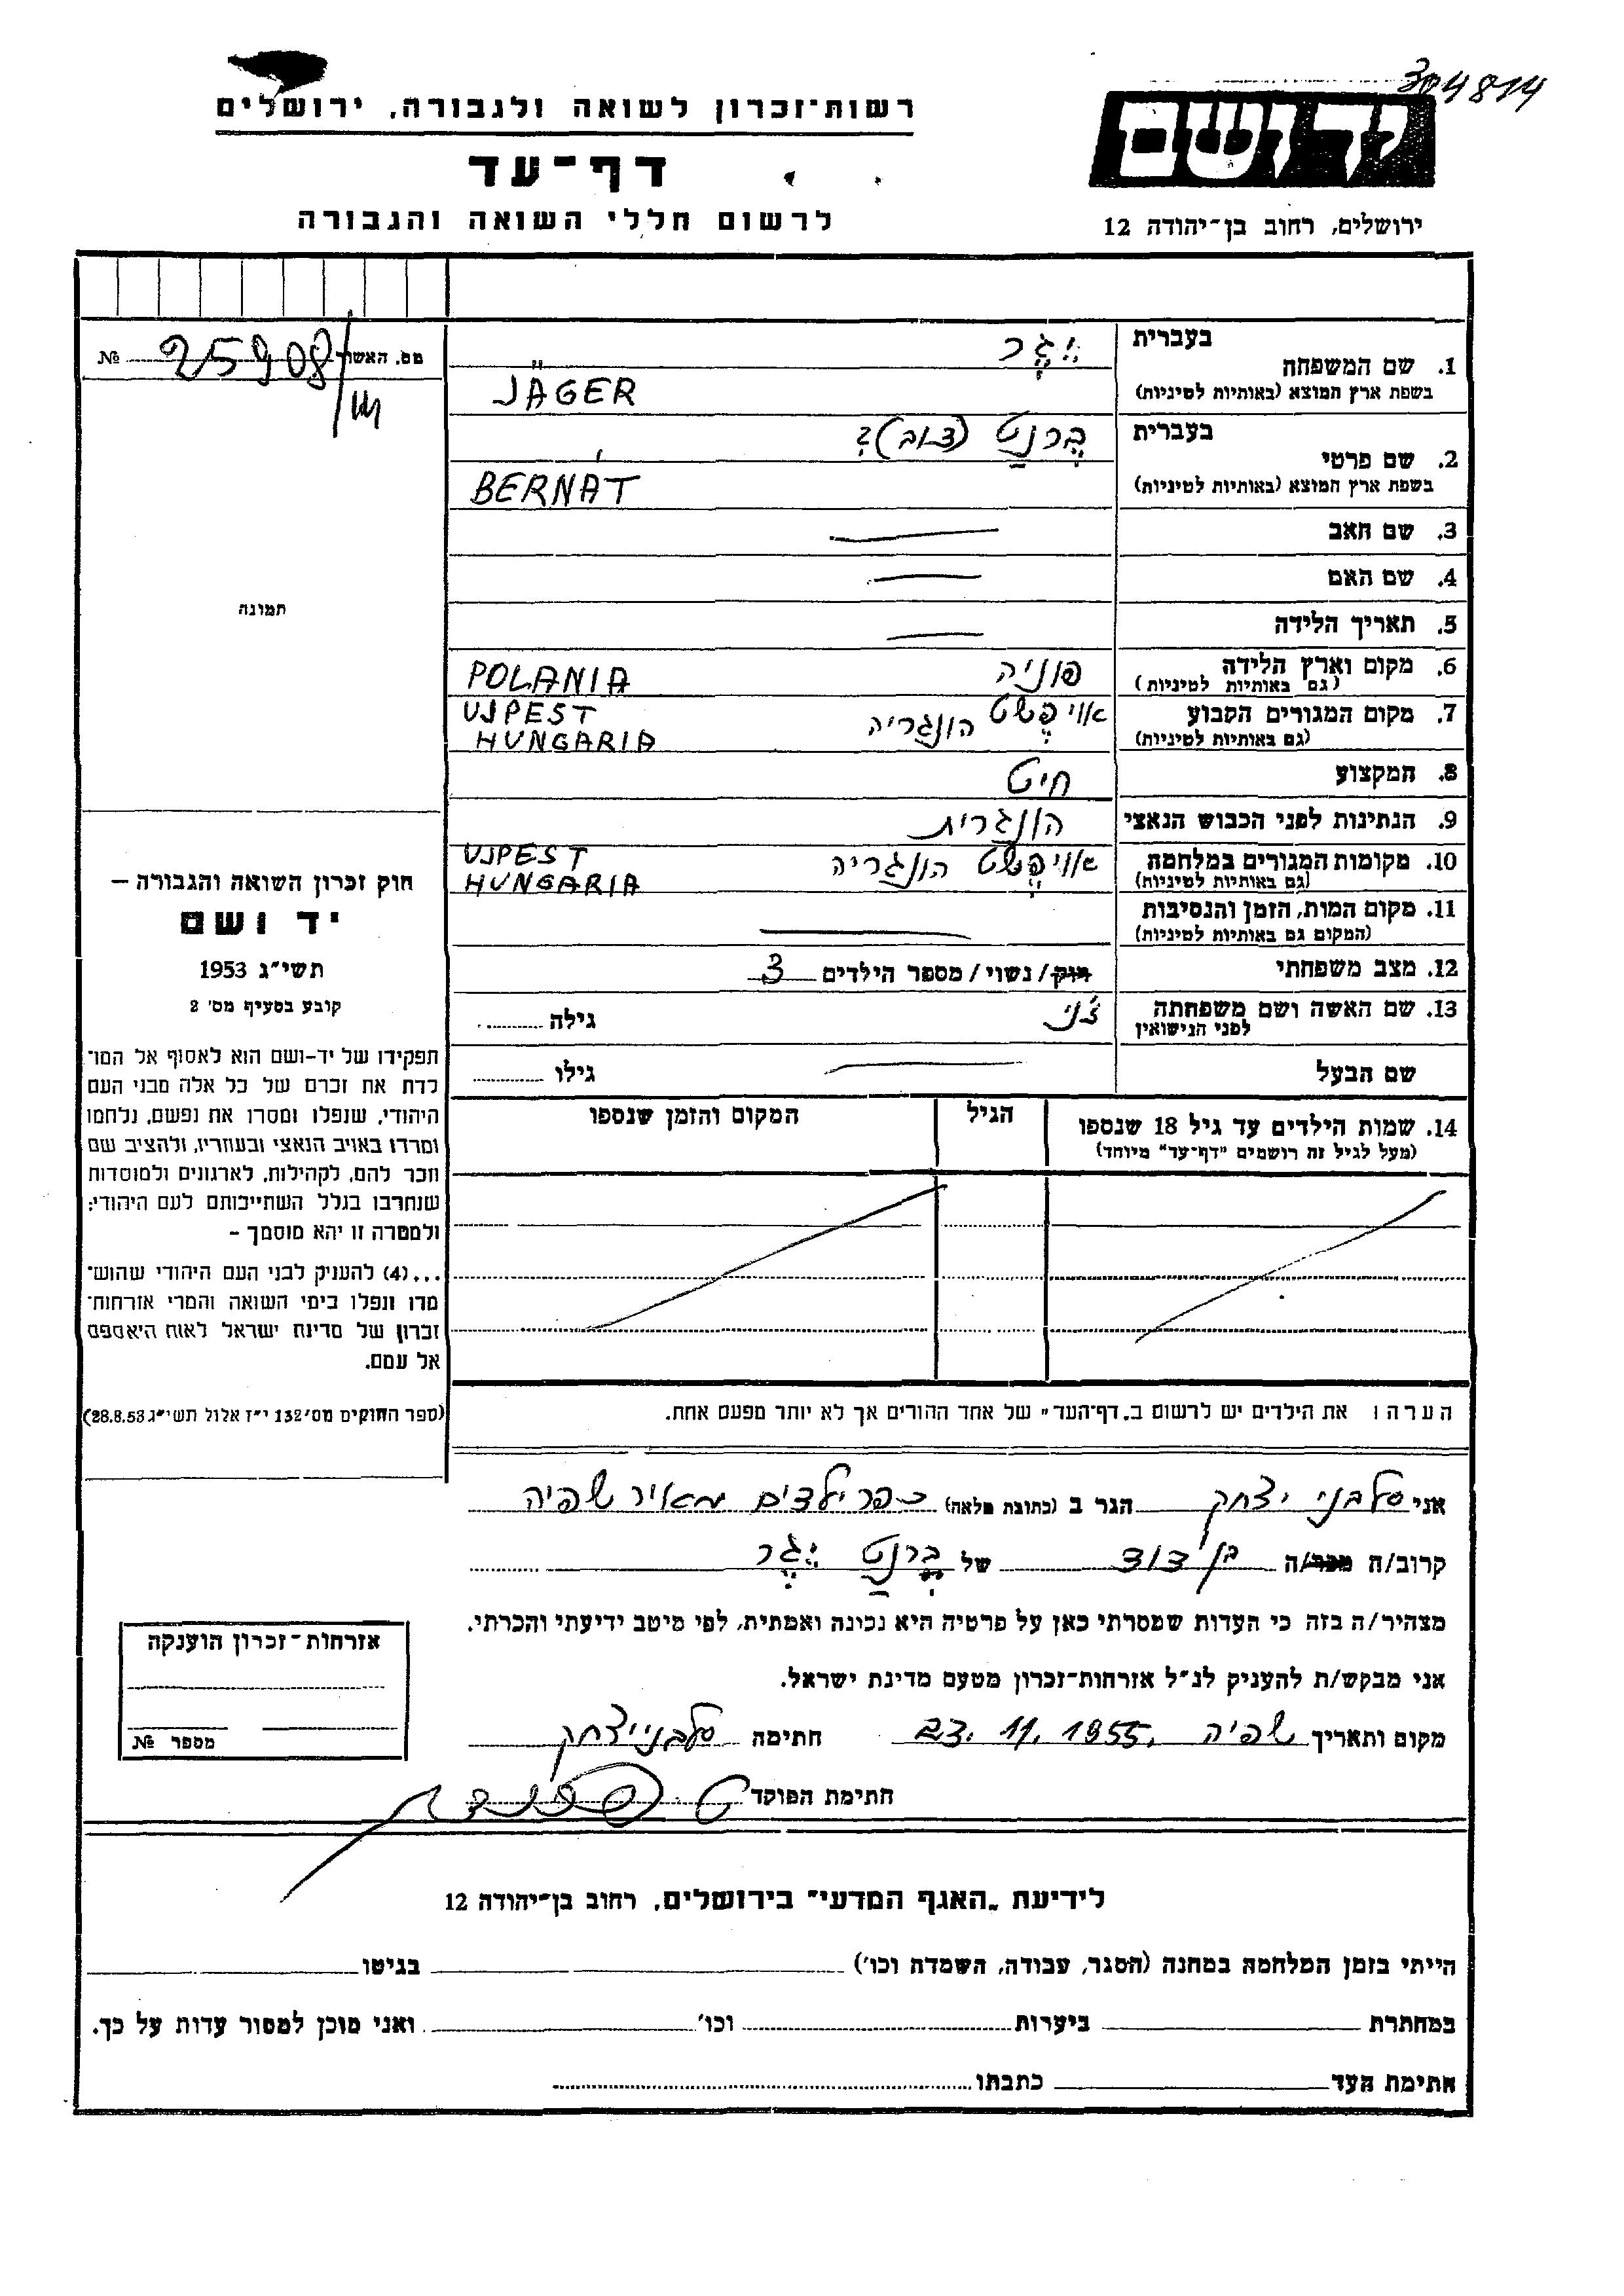 304814
רשות־זכרון לשואה ולגבורה, ירושלים
ידושם
דף־עד
לרשום חללי השואה והגבורה
ירושלים, רחוב בן־יהודה 12
מס. האשור 25908/ №
1. שם המשפחה
בעברית יגר
בשפת ארץ המוצא (באותיות לטיניות) JÄGER
2. שם פרטי
בעברית ברנט (דוב)?
בשפת ארץ המוצא (באותיות לטיניות) BERNÁT
3. שם האב —
4. שם האם —
5. תאריך הלידה —
6. מקום וארץ הלידה פוניה POLANIA
(גם באותיות לטיניות)
7. מקום המגורים הקבוע אויפשט הונגריה UJPEST
(גם באותיות לטיניות) HUNGARIA
8. המקצוע חיט
9. הנתינות לפני הכבוש הנאצי הונגרית
10. מקומות המגורים במלחמה אויפשט הונגריה UJPEST
(גם באותיות לטיניות) HUNGARIA
11. מקום המות, הזמן והנסיבות —
(המקום גם באותיות לטיניות)
12. מצב משפחתי רוק/נשוי/מספר הילדים 3
13. שם האשה ושם משפחתה ז'ני גילה
לפני הנישואין
שם הבעל — גילו
14. שמות הילדים עד גיל 18 שנספו הגיל המקום והזמן שנספו
(מעל לגיל זה רושמים "דף־עד" מיוחד)
הערה: את הילדים יש לרשום ב„דף־העד" של אחד ההורים אך לא יותר מפעם אחת.
תמונה
חוק זכרון השואה והגבורה —
יד ושם
תשי"ג 1953
קובע בסעיף מס' 2
תפקידו של יד-ושם הוא לאסוף אל המו־
לדת את זכרם של כל אלה מבני העם
היהודי, שנפלו ומסרו את נפשם, נלחמו
ומרדו באויב הנאצי ובעוזריו, ולהציב שם
וזכר להם, לקהילות, לארגונים ולמוסדות
שנחרבו בגלל השתייכותם לעם היהודי;
ולמטרה זו יהא מוסמך –
...(4) להעניק לבני העם היהודי שהוש־
מדו ונפלו בימי השואה והמרי אזרחות־
זכרון של מדינת ישראל לאות היאספם
אל עמם.
(ספר החוקים מס' 132 י"ז אלול תשי"ג 28.8.53)
אני סלבני יצחק הגר ב (כתובת מלאה) כפר ילדים מאיר שפיה
קרוב/ה מכר/ה בן דוד של ברנט יגר
מצהיר/ה בזה כי העדות שמסרתי כאן על פרטיה היא נכונה ואמתית, לפי מיטב ידיעתי והכרתי.
אני מבקש/ת להעניק לנ"ל אזרחות־זכרון מטעם מדינת ישראל.
מקום ותאריך שפיה, 23.11.1955 חתימה סלבני יצחק
חתימת הפוקד
אזרחות־זכרון הוענקה
מספר №
לידיעת „האגף המדעי" בירושלים, רחוב בן־יהודה 12
הייתי בזמן המלחמה במחנה (הסגר, עבודה, השמדה וכו') בגיטו
במחתרת ביערות וכו' ואני מוכן למסור עדות על כך.
חתימת העד כתבתו